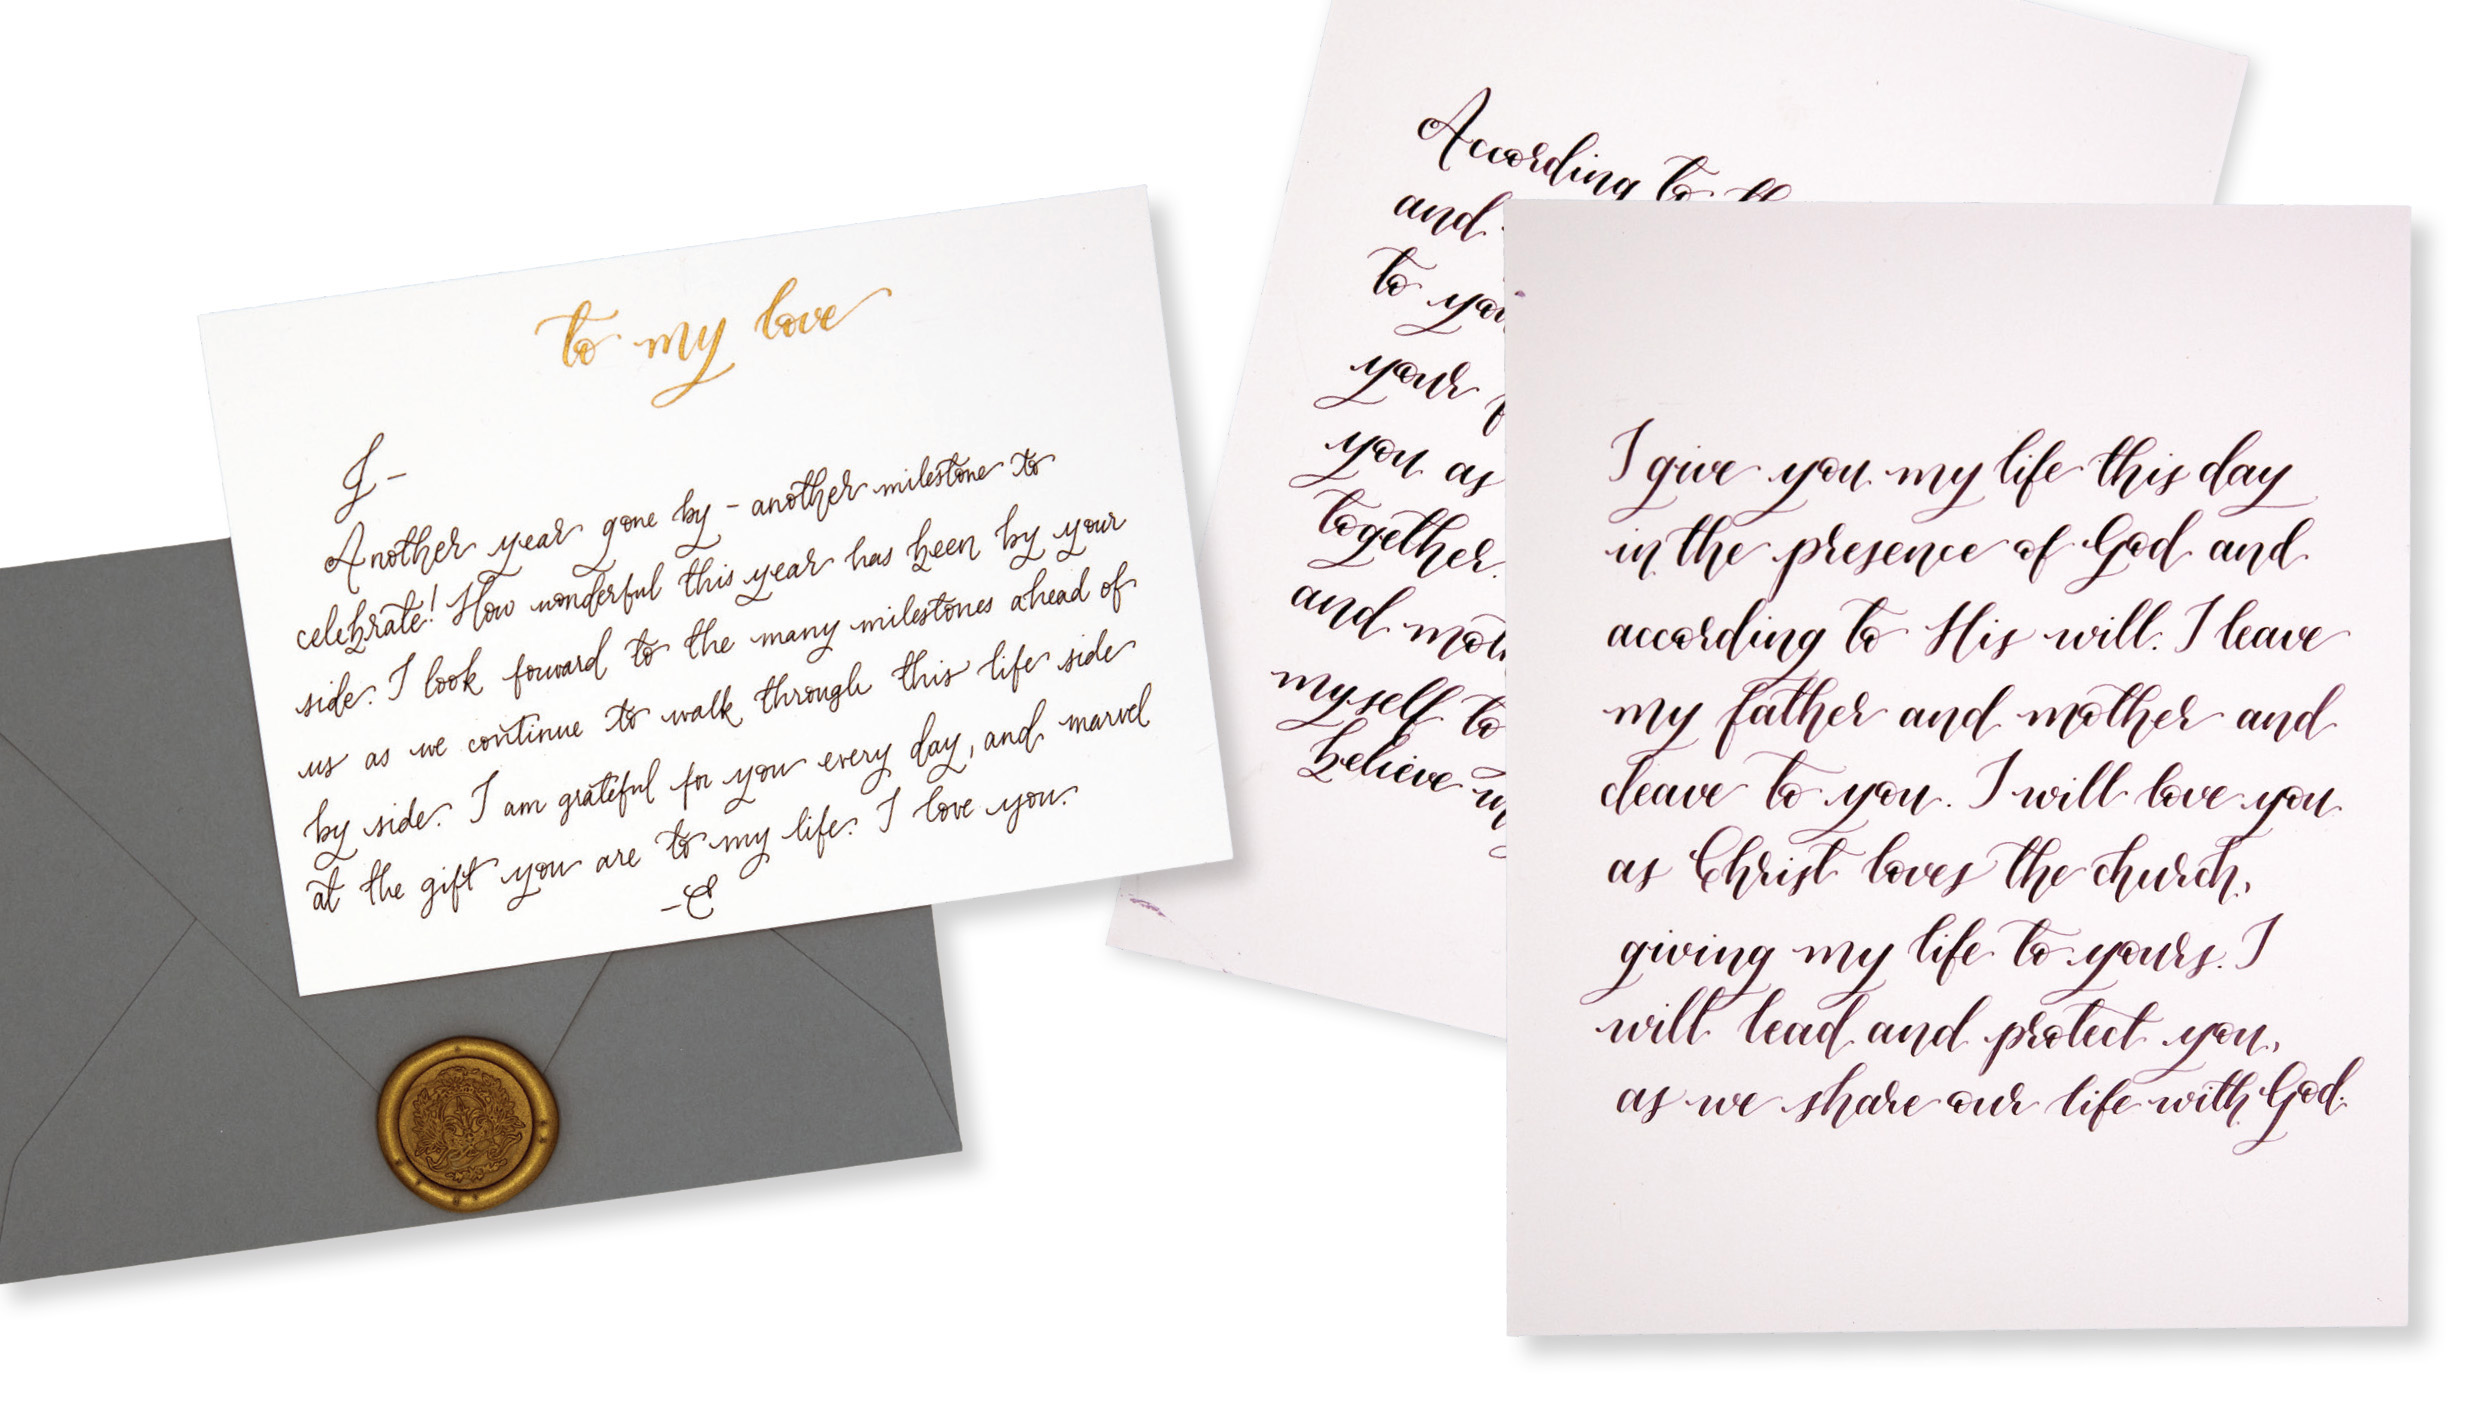 to my love
J-
Another year gone by - another milestone to
celebrate! How wonderful this year has been by your
side. I look forward to the many milestones ahead of
us as we continue to walk through this life side
by side. I am grateful for you every day, and marvel
at the gift you are to my life. I love you.
-E
According to th
and
to you
your
you as
together.
and mot
myself to
believe
I give you my life this day
in the presence of God and
according to His will. I leave
my father and mother and
cleave to you. I will love you
as Christ loves the church,
giving my life to yours. I
will lead and protect you,
as we share our life with God.